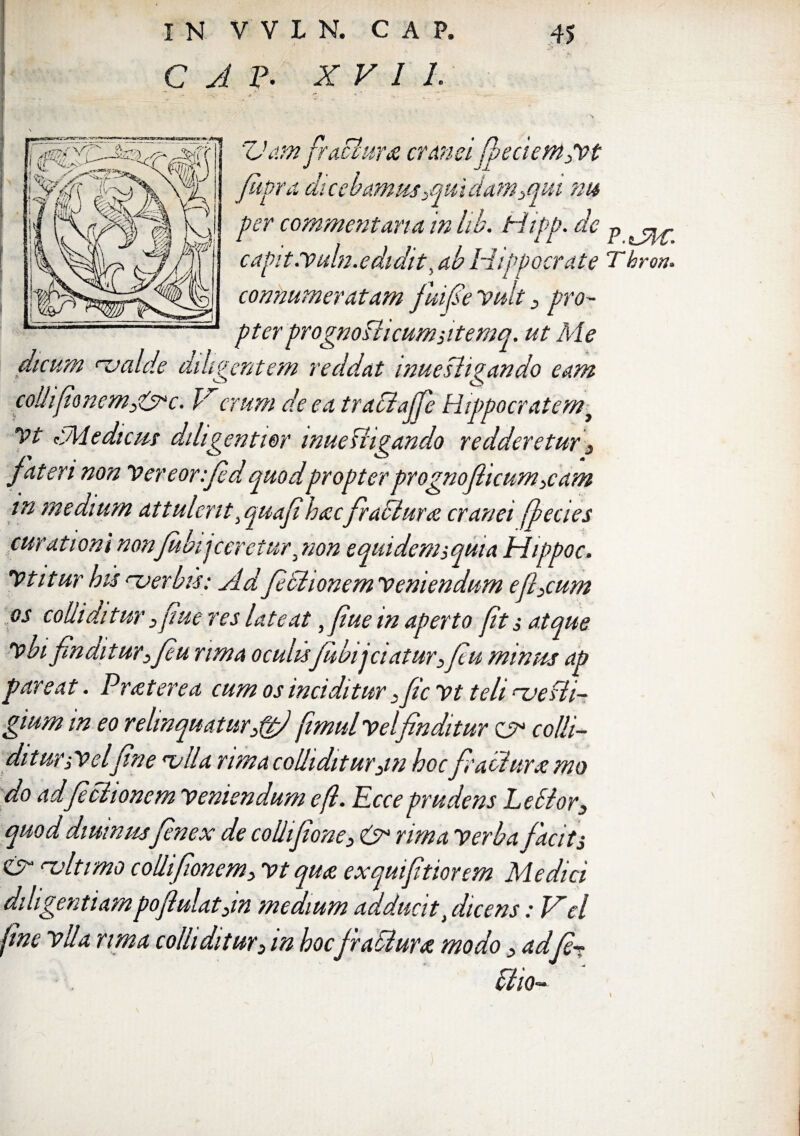 IN VVLN. CAP. 45
CAP. XVII.
QVam fracturæ cranei speciem, vt
supra dicebamus, quidam, qui nu
per commentaria in lib. Hipp. de
capit. vuln. edidit, ab Hippocrate
connumeratam fuisse vult, pro-
pter prognosticum; itemq. ut Me
P. M.
Thron.
dicum valde diligentem reddat inuestigando eam
collisionem, &c. Verum de ea tractasse Hippocratem,
vt Medicus diligentior inuestigando redderetur,
fateri non vereor: sed quod propter prognosticum, eam
in medium attulerit, quasi hæc fracturæ cranei species
curationi non subijceretur, non equidem; quia Hippoc.
vtitur his verbis: Ad sectionem veniendum est, cum
os colliditur, siue res lateat, siue in aperto sit; atque
vbi finditur, seu rima oculis subijciatur, seu minus ap
pareat. Præterea cum os inciditur, sic vt teli vesti-
gium in eo relinquatur, & simul vel finditur & colli-
ditur; vel sine vlla rima colliditur, in hoc fracturæ mo
do ad sectionem veniendum est. Ecce prudens Lector,
quod diuinus senex de collisione, & rima verba facit;
& vltimo collisionem, vt quæ exquisitiorem Medici
diligentiam postulat, in medium adducit, dicens: Vel
sine vlla rima colliditur, in hoc fracturæ modo, ad se-
ctio-